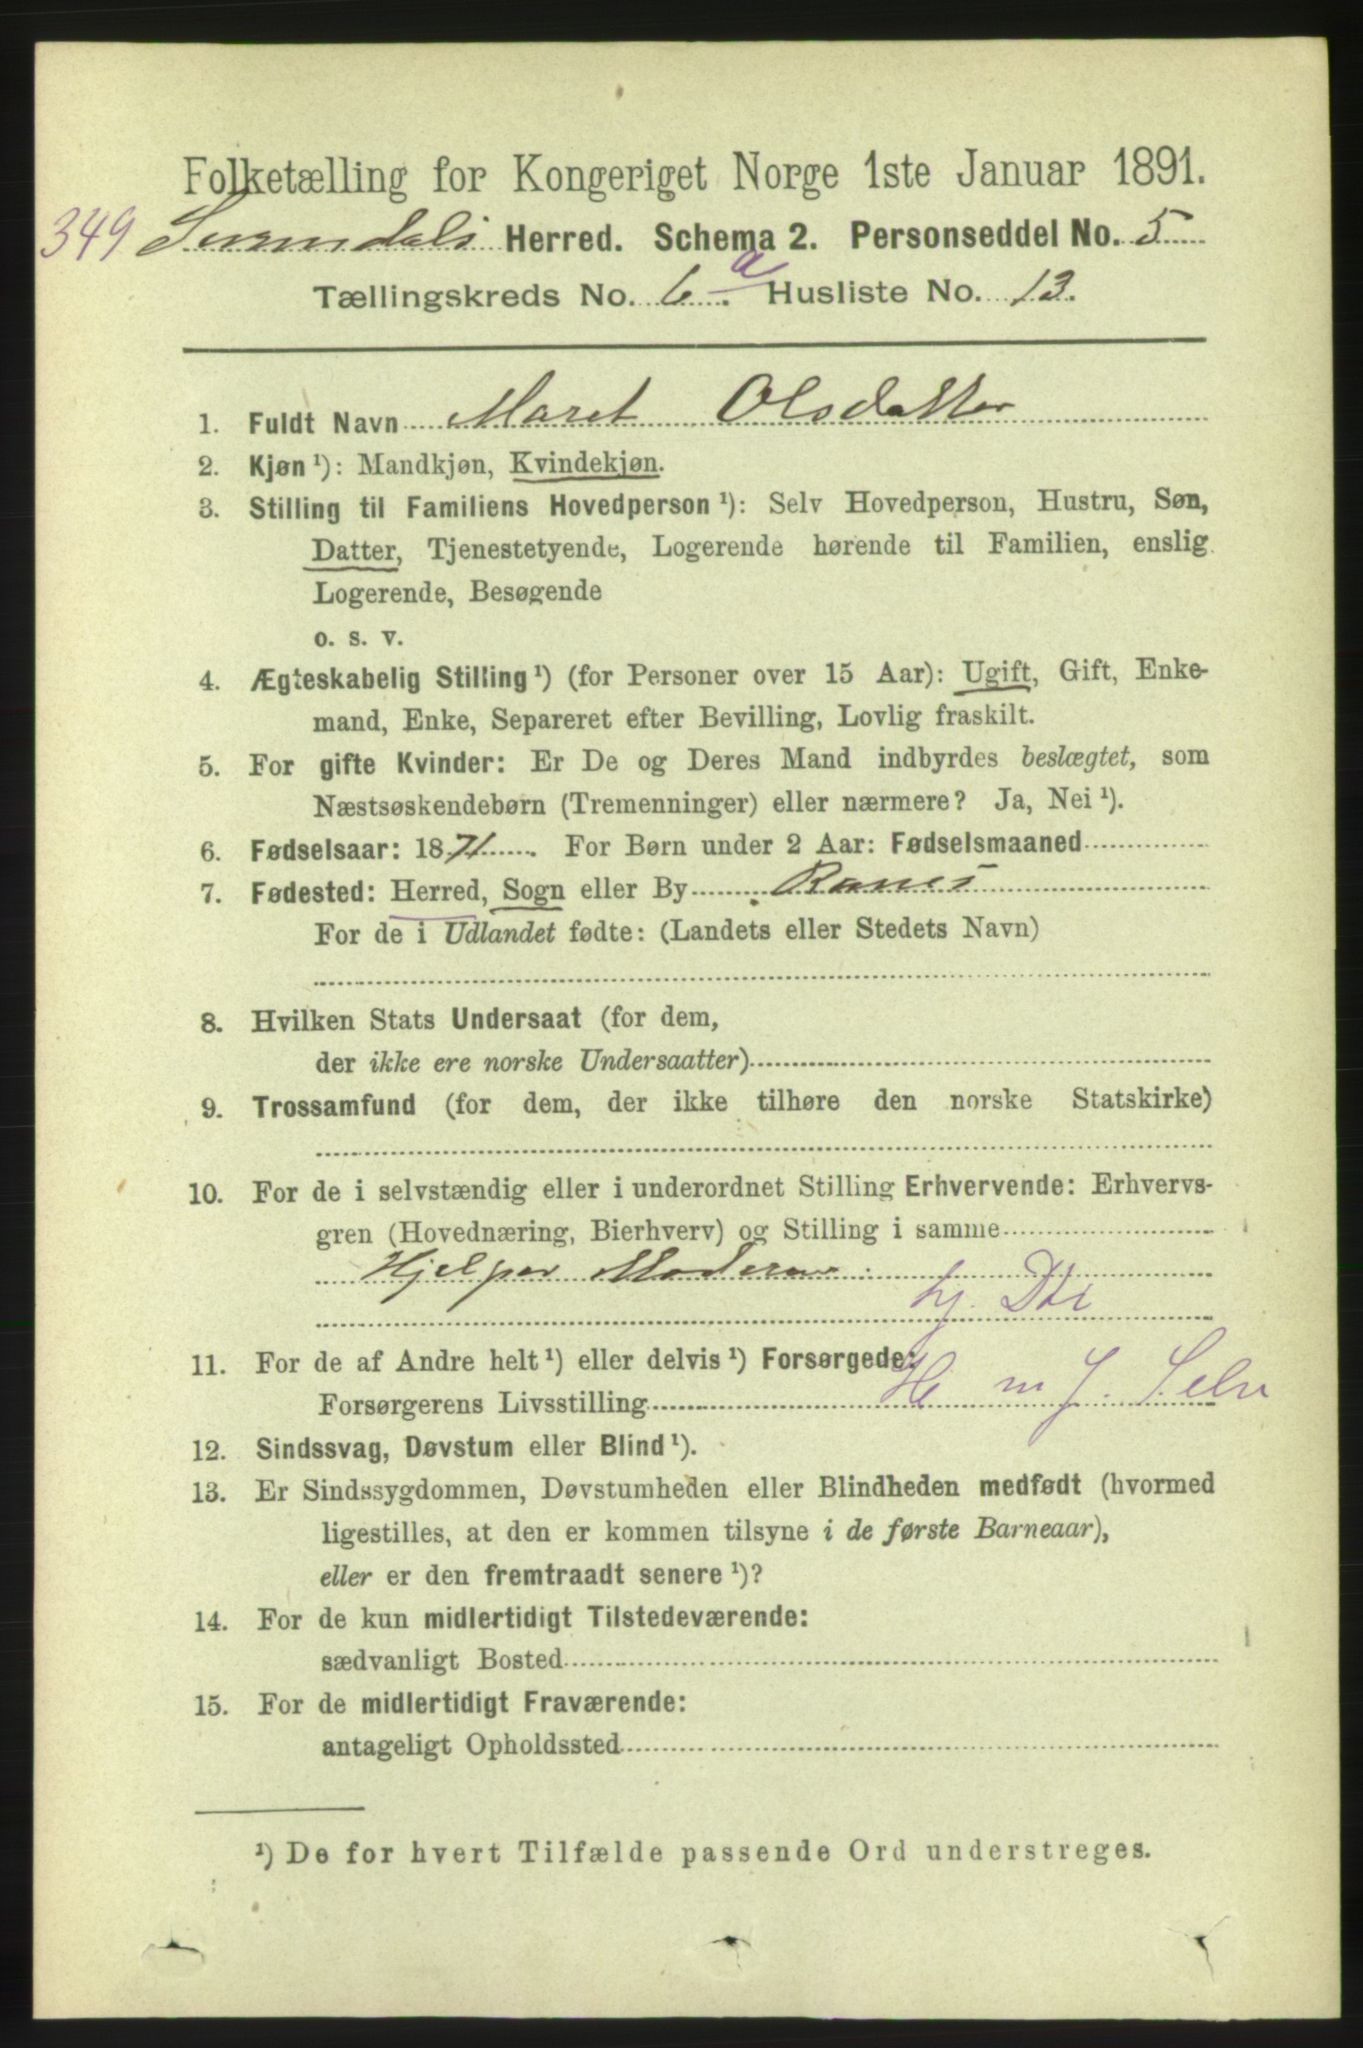 Folketælling for Kongeriget Norge 1ste Januar 1891.
349 Surendals Herred. Schema 2. Personseddel No. 5
Tællingskreds No. 6 a. Husliste No. 13.
1. Fuldt Navn Maret Olsdatter
2. Kjøn ¹): Mandkjøn, Kvindekjøn.
3. Stilling til Familiens Hovedperson ¹): Selv Hovedperson, Hustru, Søn,
Datter, Tjenestetyende, Logerende hørende til Familien, enslig
Logerende, Besøgende
o. s. v.
4. Ægteskabelig Stilling ¹) (for Personer over 15 Aar): Ugift, Gift, Enke-
mand, Enke, Separeret efter Bevilling, Lovlig fraskilt.
5. For gifte Kvinder: Er De og Deres Mand indbyrdes beslægtet, som
Næstsøskendebørn (Tremenninger) eller nærmere? Ja, Nei ¹).
6. Fødselsaar: 1871. For Børn under 2 Aar: Fødselsmaaned
7. Fødested: Herred, Sogn eller By Ranes
For de i Udlandet fødte: (Landets eller Stedets Navn)
8. Hvilken Stats Undersaat (for dem,
der ikke ere norske Undersaatter)
9. Trossamfund (for dem, der ikke tilhøre den norske Statskirke)
10. For de i selvstændig eller i underordnet Stilling Erhvervende: Erhvervs-
gren (Hovednæring, Bierhverv) og Stilling i samme
Hjelper Moderen
hj. Dtr
11. For de af Andre helt ¹) eller delvis ¹) Forsørgede:
Forsørgerens Livsstilling H m J. Selv
12. Sindssvag, Døvstum eller Blind ¹).
13. Er Sindssygdommen, Døvstumheden eller Blindheden medfødt (hvormed
ligestilles, at den er kommen tilsyne i de første Barneaar),
eller er den fremtraadt senere ¹)?
14. For de kun midlertidigt Tilstedeværende:
sædvanligt Bosted
15. For de midlertidigt Fraværende:
antageligt Opholdssted
¹) De for hvert Tilfælde passende Ord understreges.